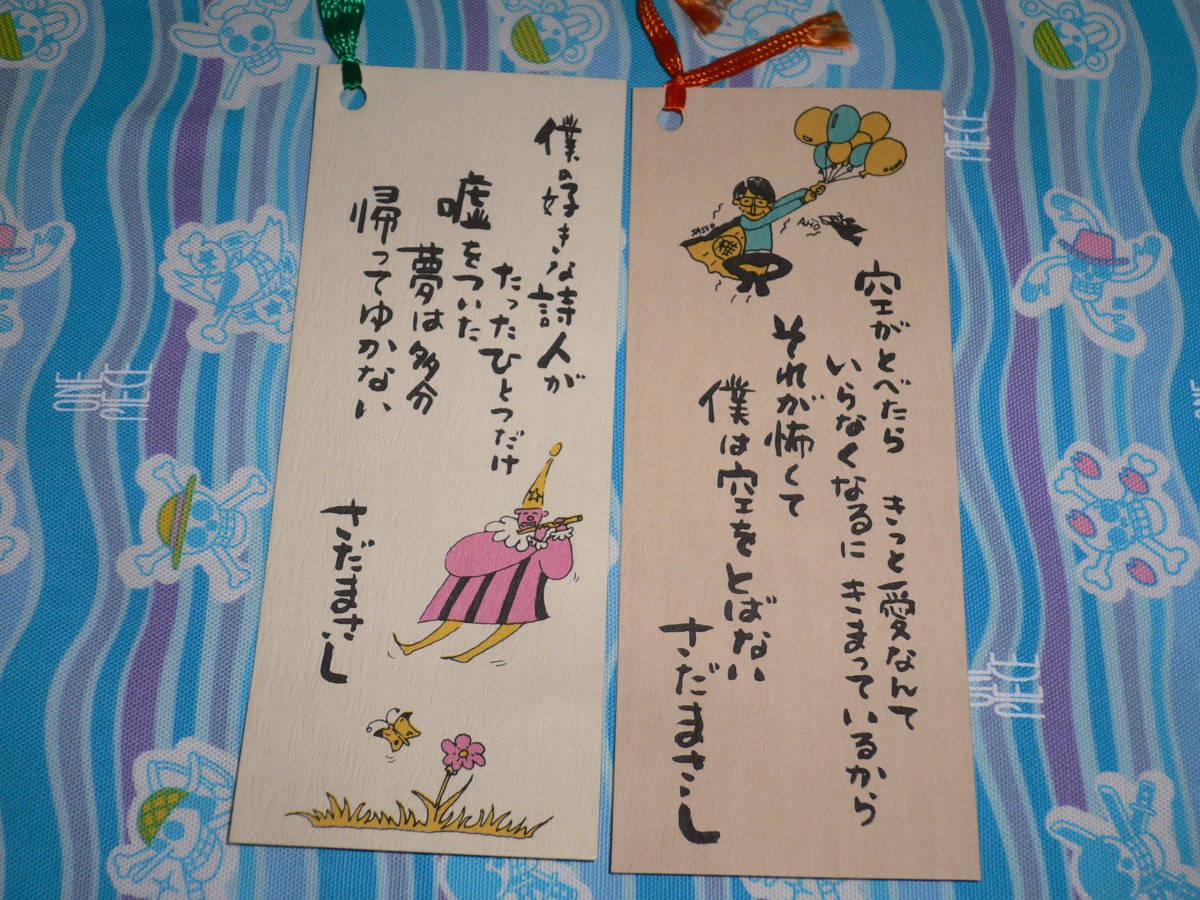 僕の好きな詩人が
たったひとつだけ
嘘をついた
夢は多分
帰ってゆかない
さだまさし
空がとべたら きっと愛なんて
いらなくなるに きまっているから
それが怖くて
僕は空をとばない
さだまさし
ONE PIECE
ONE PIECE
ONE PIECE